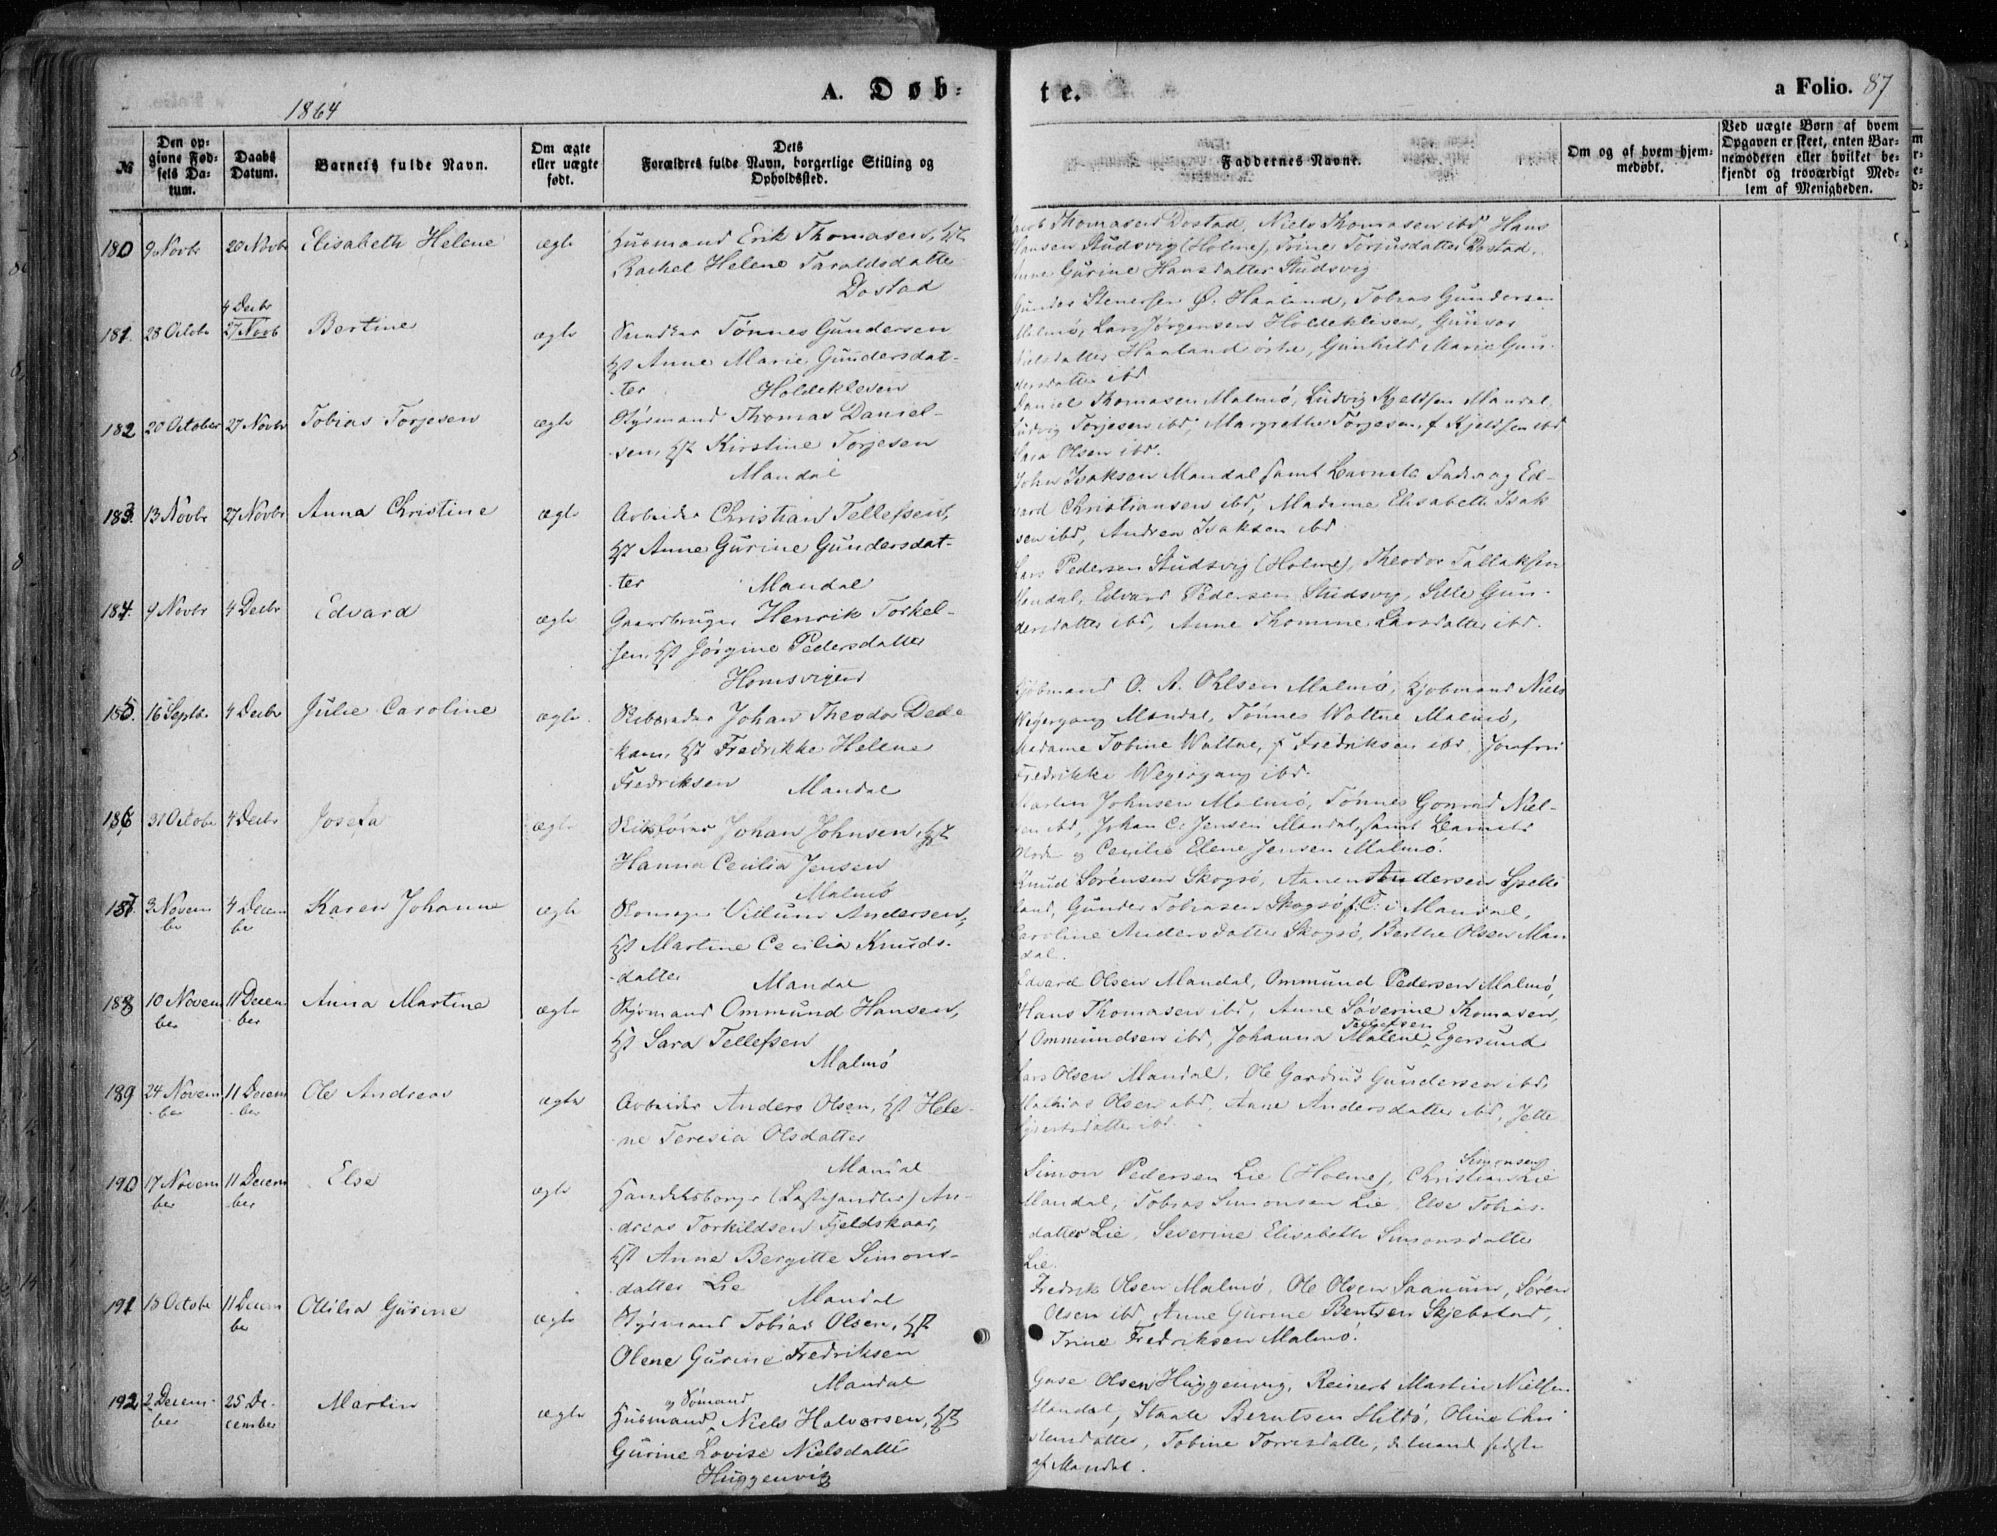 1864
A. Døb-
te.
a Folio. 87
№
Den op-
givne Fød-
sels Da-
tum.
Daabs
Datum.
Barnets fulde Navn.
Om ægte
eller uægte
født.
Dets
Forældres fulde Navn, borgerlige Stilling og
Opholdssted.
Faddernes Navne.
Om og af hvem hjem-
medøbt.
Ved uægte Børn af hvem
Opgaven er skeet, enten Bar-
nemoderen eller hvilket be-
kjendt og troværdigt Med-
lem af Menigheden.
180 9 Novbr 20 Novbr Elisabeth Helene ægte Husmand Erik Thomasen, Hst
Rachel Helene Taraldsdatter
Dostad
Thomasen Dostad, Niels Thomasen ibd, Hans
Hansen Studsvig (Holme), Trine Torjusdatter Dostad,
Gurine Hansdatter Studsvig
181. 28 Octobr 4 Decbr 27 Novb Bertine ægte Tønnes Gundersen
Hst Anne Marie Gundersdat-
ter Holdekleven
Stenersen Ø. Haaland, Tobias Gundersen
Malmö, Lars Jørgensen Holdekleven, Gunvor
Nielsdatter Haaland østre, Gunhild Marie Gun-
dersdatter ibd
182 20 October 27 Novbr Tobias Torjesen ægte Styrmand Thomas Daniel-
sen, Hst Kirstine Torjesen
Mandal
Daniel Thomasen Malmö, Ludvig Kjeldsen Mandal,
Ludvig Torjesen ibd, Margrethe Torjesen, f. Kjeldsen ibd
Sara Olsen ibd.
183. 13 Novbr 27 Novbr Anna Christine ægte Arbeider Christian Tellefsen,
Hst Anne Gurine Gundersdat-
ter Mandal
John Isaksen Mandal samt Barnets Fader og Ed-
vard Christiansen ibd, Madame Elisabeth Isak
sen ibd, Andrea Isaksen ibd
184. 9 Novbr 4 Decbr Edvard ægte Gaardbruger Henrik Torkel-
sen, Hst Jørgine Pedersdatter
Homsvigen
Lars Pedersen Studsvig (Holme), Theodor Tallaksen
Mandal, Edvard Pedersen Studsvig, Sille Gun-
dersdatter ibd, Anne Thomine Larsdatter ibd.
185. 16 Septbr 4 Decbr Julie Caroline ægte Johan Theodor Dede
kam, Hst Fredrikke Helene
Fredriksen Mandal
Kjøbmand O. A. Ohlsen Malmö, Kjøbmand Niels
Wegergang Mandal, Tönnes Wattne Malmö,
Madame Tobine Wattne, f. Fredriksen ibd, Jomfru
Fredrikke Wegergang ibd
186 31 Octobr 4 Decbr Josefa ægte Johan Johnsen, Hst
Hanna Cecilia Jensen
Malmö
Martin Johnsen Malmö, Tønnes Gonrad Niel-
sen ibd, Johan C. Jensen Mandal, samt Barnets
Moder og Cecilie Elene Jensen Malmö.
187. 3 Novem
ber 4 Decem
ber Karen Johanne ægte Villum Andersen,
Hst Martine Cecilia Knuds-
datter Mandal
Knud Sörensen Skogsö, Andersen
land, Gunder Tobiasen Skogsö i Mandal,
Caroline Andersdatter Skogsö, Berthe Olsen Man
dal.
188 10 Novem
ber 11 Decem-
ber Anna Martine ægte Styrmand Ommund Hansen,
Hst Sara Tellefsen
Malmö
Edvard Olsen Mandal, Ommund Pedersen Malmö,
Hans Thomasen ibd, Anne Söverine Thomasen,
f Ommundsen ibd, Johanna Malene Tellefsen Egersund
189 24 Novem
ber 11 Decem
ber Ole Andreas ægte Arbeider Anders Olsen, Hst Hele-
ne Teresia Olsdatter
Mandal
Lars Olsen Mandal, Ole Gardius Gundersen ibd,
Mathias Olsen ibd, Anne Andersdatter ibd, Jette
ibd.
190 17 Novem
ber 11 Decem
ber Else ægte Handelsborger (Lasthandler) An-
dreas Torkildsen Fjeldskaar,
Hst Anne Bergitte Simons-
datter Lie Mandal
Simon Pedersen Lie (Holme), Christian Simonsen Lie
Mandal, Tobias Simonsen Lie, Else Tobias-
datter Lie, Severine Elisabeth Simonsdatter
Lie.
191 13 Octobr 11 Decem
ber Ottilia Gurine ægte Styrmand Tobias Olsen, Hst
Olene Gurine Fredriksen
Mandal
Fredrik Olsen Malmö, Ole Olsen Saanum, Sören
Olsen ibd, Anne Gurine Bentsen Skjebstad,
Trine Fredriksen Malmö.
192 2 Decem-
ber 25 De-
cember Martin ægte Husmand og Sømand Niels Halvorsen, Hst
Gurine Lovise Nielsdatter
Huggenvig
Gase Olsen Huggenvig, Reinert Martin Nielsen
Mandal, Staale Berntsen Hildö, Oline Chri
stensdatter, Tobine Torresdatter,
af Mandal.